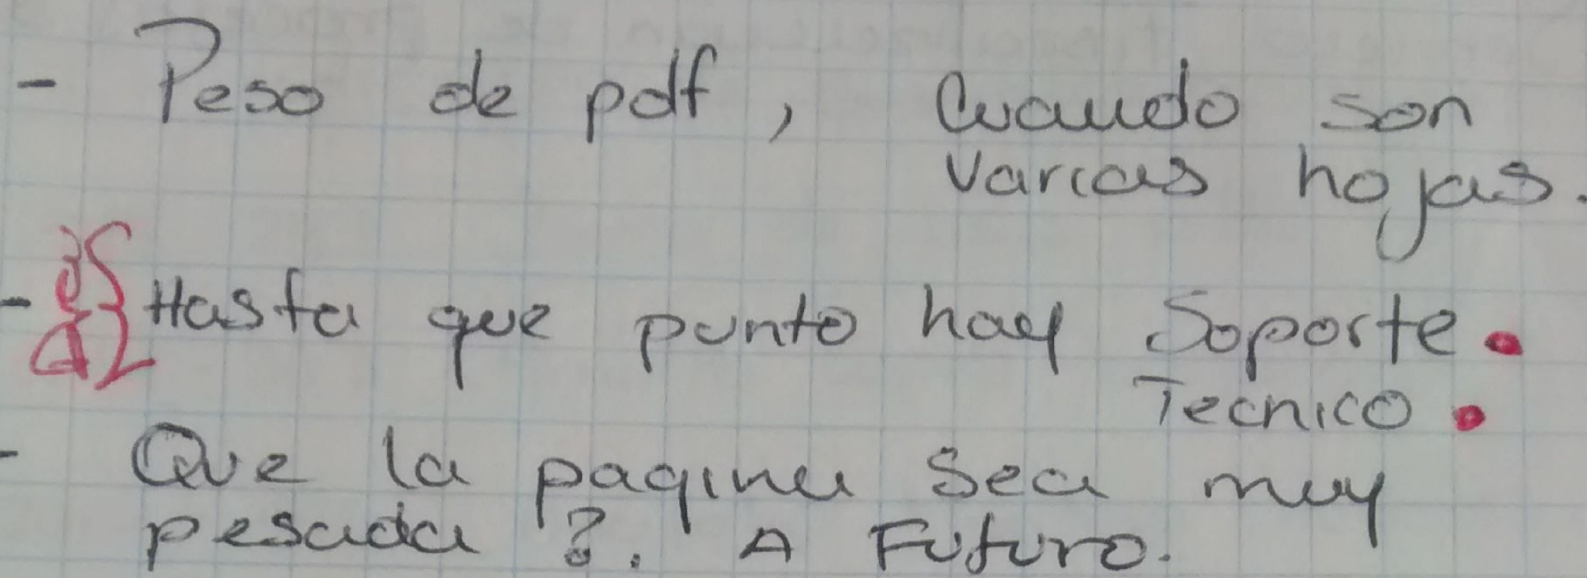 - Peso de pdf, Cuando son
varias hojas.
- Hasta que punto hay Soporte.
Tecnico.
- Que la pagina sea muy
pesada ?. A Futuro.